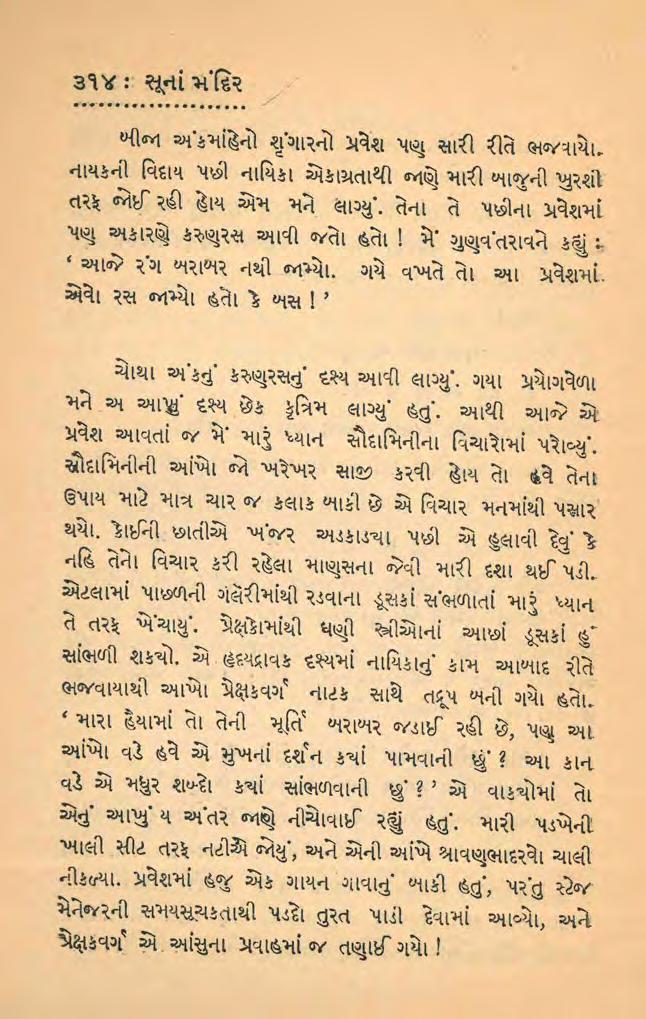 ૩૧૪ : સૂનાં મંદિર
બીજા અંકમાંહેનો શૃંગારનો પ્રવેશ પણ સારી રીતે ભજવાયો.
નાયકની વિદાય પછી નાયિકા એકાગ્રતાથી જાણે મારી બાજુની ખુરશી
તરફ જોઈ રહી હોય એમ મને લાગ્યું. તેના તે પછીના પ્રવેશમાં
પણ અકારણે કરુણરસ આવી જતો હતો ! મેં ગુણવંતરાવને કહ્યું :
‘ આજે રંગ બરાબર નથી જામ્યો. ગયે વખતે તો આ પ્રવેશમાં
એવો રસ જામ્યો હતો કે બસ ! ’
ચોથા અંકનું કરુણરસનું દૃશ્ય આવી લાગ્યું. ગયા પ્રયોગવેળા
મને અ આખું દૃશ્ય છેક કૃત્રિમ લાગ્યું હતું. આથી આજે એ
પ્રવેશ આવતાં જ મેં મારું ધ્યાન સૌદામિનીના વિચારોમાં પરોવ્યું.
સૌદામિનીની આંખો જો ખરેખર સાજી કરવી હોય તો હવે તેના
ઉપાય માટે માત્ર ચાર જ કલાક બાકી છે એ વિચાર મનમાંથી પસાર
થયો. કોઈની છાતીએ ખંજર અડકાડ્યા પછી એ હુલાવી દેવું કે
નહિ તેનો વિચાર કરી રહેલા માણસના જેવી મારી દશા થઈ પડી.
એટલામાં પાછળની ગૅલૅરીમાંથી રડવાના ડૂસકાં સંભળાતાં મારું ધ્યાન
તે તરફ ખેંચાયું. પ્રેક્ષકોમાંથી ઘણી સ્ત્રીઓનાં આછાં ડૂસકાં હું
સાંભળી શકયો. એ હૃદયદ્રાવક દૃશ્યમાં નાયિકાનું કામ આબાદ રીતે
ભજવાયાથી આખો પ્રેક્ષકવર્ગ નાટક સાથે તદ્રૂપ બની ગયો હતો.
‘ મારા હૈયામાં તો તેની મૂર્તિ બરાબર જડાઈ રહી છે, પણ આ
આંખો વડે હવે એ મુખનાં દર્શન કયાં પામવાની છું ? આ કાન
વડે એ મધુર શબ્દો કયાં સાંભળવાની છું ? ’ એ વાકયોમાં તો
એનું આખું ય અંતર જાણે નીચોવાઈ રહ્યું હતું. મારી પડખેની
ખાલી સીટ તરફ નટીએ જોયું, અને એની આંખે શ્રાવણભાદરવો ચાલી
નીકળ્યા. પ્રવેશમાં હજુ એક ગાયન ગાવાનું બાકી હતું, પરંતુ સ્ટેજ
મેનેજરની સમયસૂચકતાથી પડદો તુરત પાડી દેવામાં આવ્યો, અને
પ્રેક્ષકવર્ગ એ આંસુના પ્રવાહમાં જ તણાઈ ગયો !